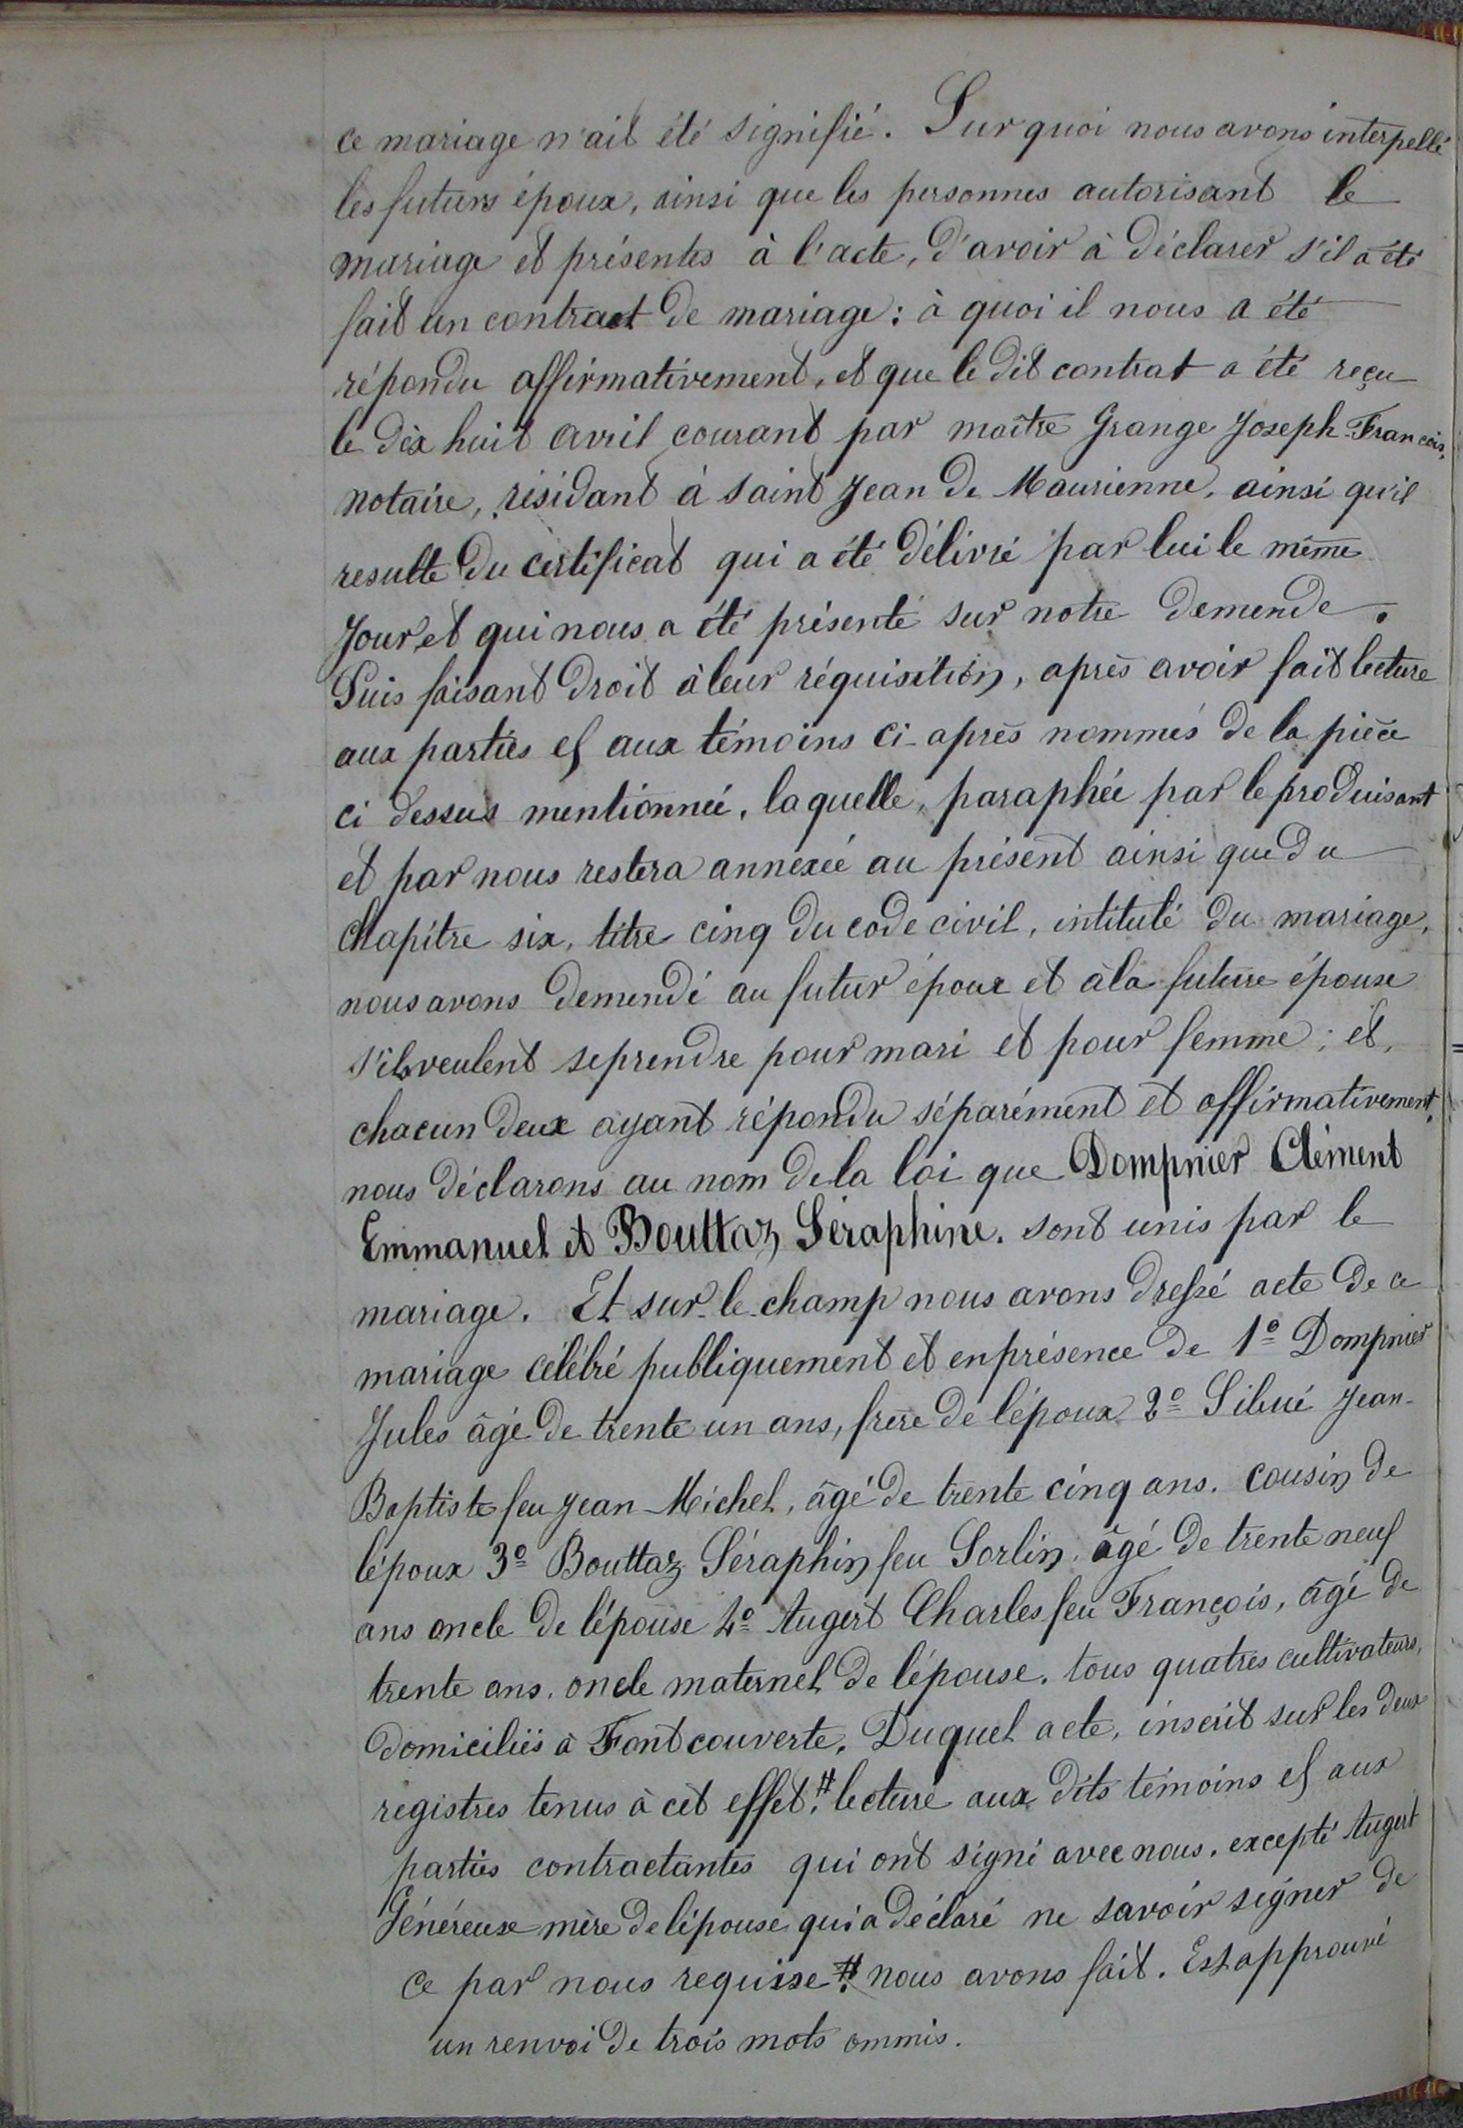 ce mariage n'ait été signifié. Sur quoi nous avons interpellé
les futurs époux, ainsi que les personnes autorisant le
mariage et présentes à l'acte, d'avoir à déclarer s'il a été
fait un contract de mariage : à quoi il nous a été
répondu affirmativement, et que le dit contrat a été reçu
le dix huit avril courant par maître Grange Joseph-François,
notaire, résidant à Saint Jean de Maurienne, ainsi qu'il
resulte du certificat qui a été délivré par lui le même
Jour et qui nous a été présenté sur notre demende.
Puis faisant droit à leur réquisition, après avoir fait lecture
aux parties et aux témoins ci-après nommés de la pièce
ci dessus mentionnée, laquelle, paraphée par le produisant
et par nous restera annexée au présent ainsi que du
chapitre six, titre cinq du code civil, intitulé du mariage,
nous avons demendé au futur époux et à la future épouse
s'ils veulent se prendre pour mari et pour femme ; et,
chacun deux ayant répondu séparément et affirmativement,
nous déclarons au nom de la loi que Dompnier Clément
Emmanuel et Bouttaz Séraphine. sont unis par le
mariage. Et sur-le-champ nous avons dressé acte de ce
mariage célébré publiquement et en présence de 1º Dompnier
Jules âgé de trente un ans, frère de l'époux 2º Sibué Jean-
Baptiste feu Jean-Michel, âgé de trente cinq ans. cousin de
l'époux 3º Bouttaz Séraphin feu Sorlin, âgé de trente neuf
ans oncle de l'épouse 4º Augert Charles feu François, âgé de
trente ans, oncle maternel de l'épouse. tous quatres cultivateurs,
domiciliés à Fontcouverte. Duquel acte, inscrit sur les deux
registres tenus à cet effet,# lecture aux dits témoins et aux
parties contractantes qui ont signé avec nous, excepté Augert
Généreuse mère de l'épouse qui a déclaré ne savoir signer de
ce par nous requisse.# nous avons fait. Est approuvé
un renvoi de trois mots ommis.